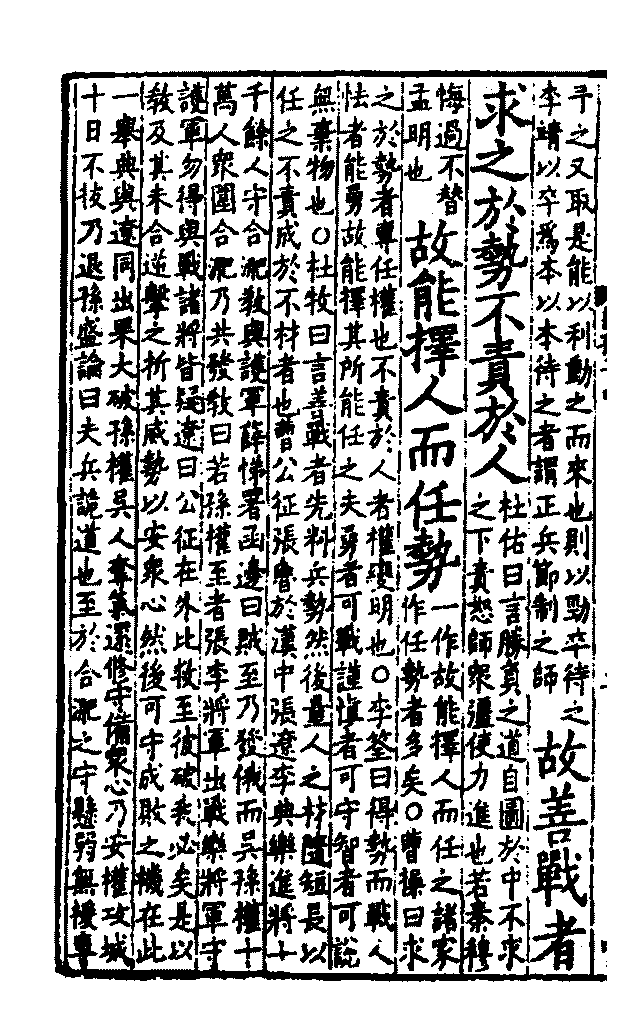 予之又取是能以利動之而來也則以勁卒待之
李靖以卒為本以本待之者謂正兵節制之師
故善戰者
求之於勢不責於人
杜佑曰言勝負之道自圖於中不求
之下責怒師衆彊使力進也若秦穆
悔過不替
孟明也
故能擇人而任勢
一作故能擇人而任之諸家
作任勢者多矣○曹操曰求
之於勢者專任權也不責於人者權變明也○李筌曰得勢而戰人
怯者能勇故能擇其所能任之夫勇者可戰謹慎者可守智者可說
無棄物也○杜牧曰言善戰者先料兵勢然後量人之材隨短長以
任之不責成於不材者也曹公征張魯於漢中張遼李典樂進將十
千餘人守合淝教與護軍薛悌署函邊曰賊至乃發俄而吳孫權十
萬人衆圍合淝乃共發教曰若孫權至者張李將軍出戰樂將軍守
護軍勿得與戰諸將皆疑遼曰公征在外比救至彼破我必矣是以
教及其未合逆擊之折其威勢以安衆心然後可守成敗之機在此
一舉典與遼同出果大破孫權吳人奪氣還修守備衆心乃安權攻城
十日不拔乃退孫盛論曰夫兵詭道也至於合淝之守懸弱無援專